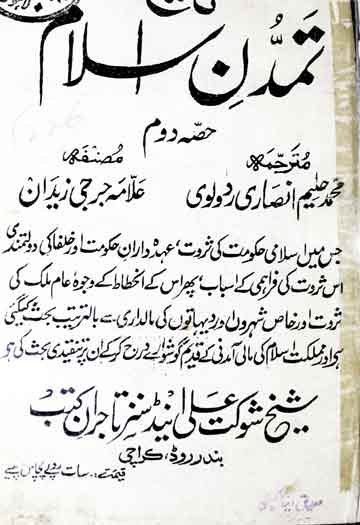 تاریخ
تمدّنِ اسلام
حصہ دوم
مترجمہ
مصنفہ
محمد حلیم انصاری ردولوی
علامہ جرجی زیدان
جس میں اسلامی حکومت کی ثروت، عہدہ داران حکومت اور خلفا کی دولتمندی
اس ثروت کی فراہمی کے اسباب، پھر اس کے انحطاط کے وجوہ عام ملک کی
ثروت اور خاص شہروں اور دیہاتوں کی مالداری سے بالترتیب بحث کیگئی
ہے اور مملکت اسلام کی مالی آمدنی کے قدیم گوشوارے درج کرکے ان پر تنقیدی بحث کی ہے
شیخ شوکت علی اینڈ سنز تاجران کتب
بندر روڈ، کراچی
قیمت:۔ سات روپے پچاس پیسے